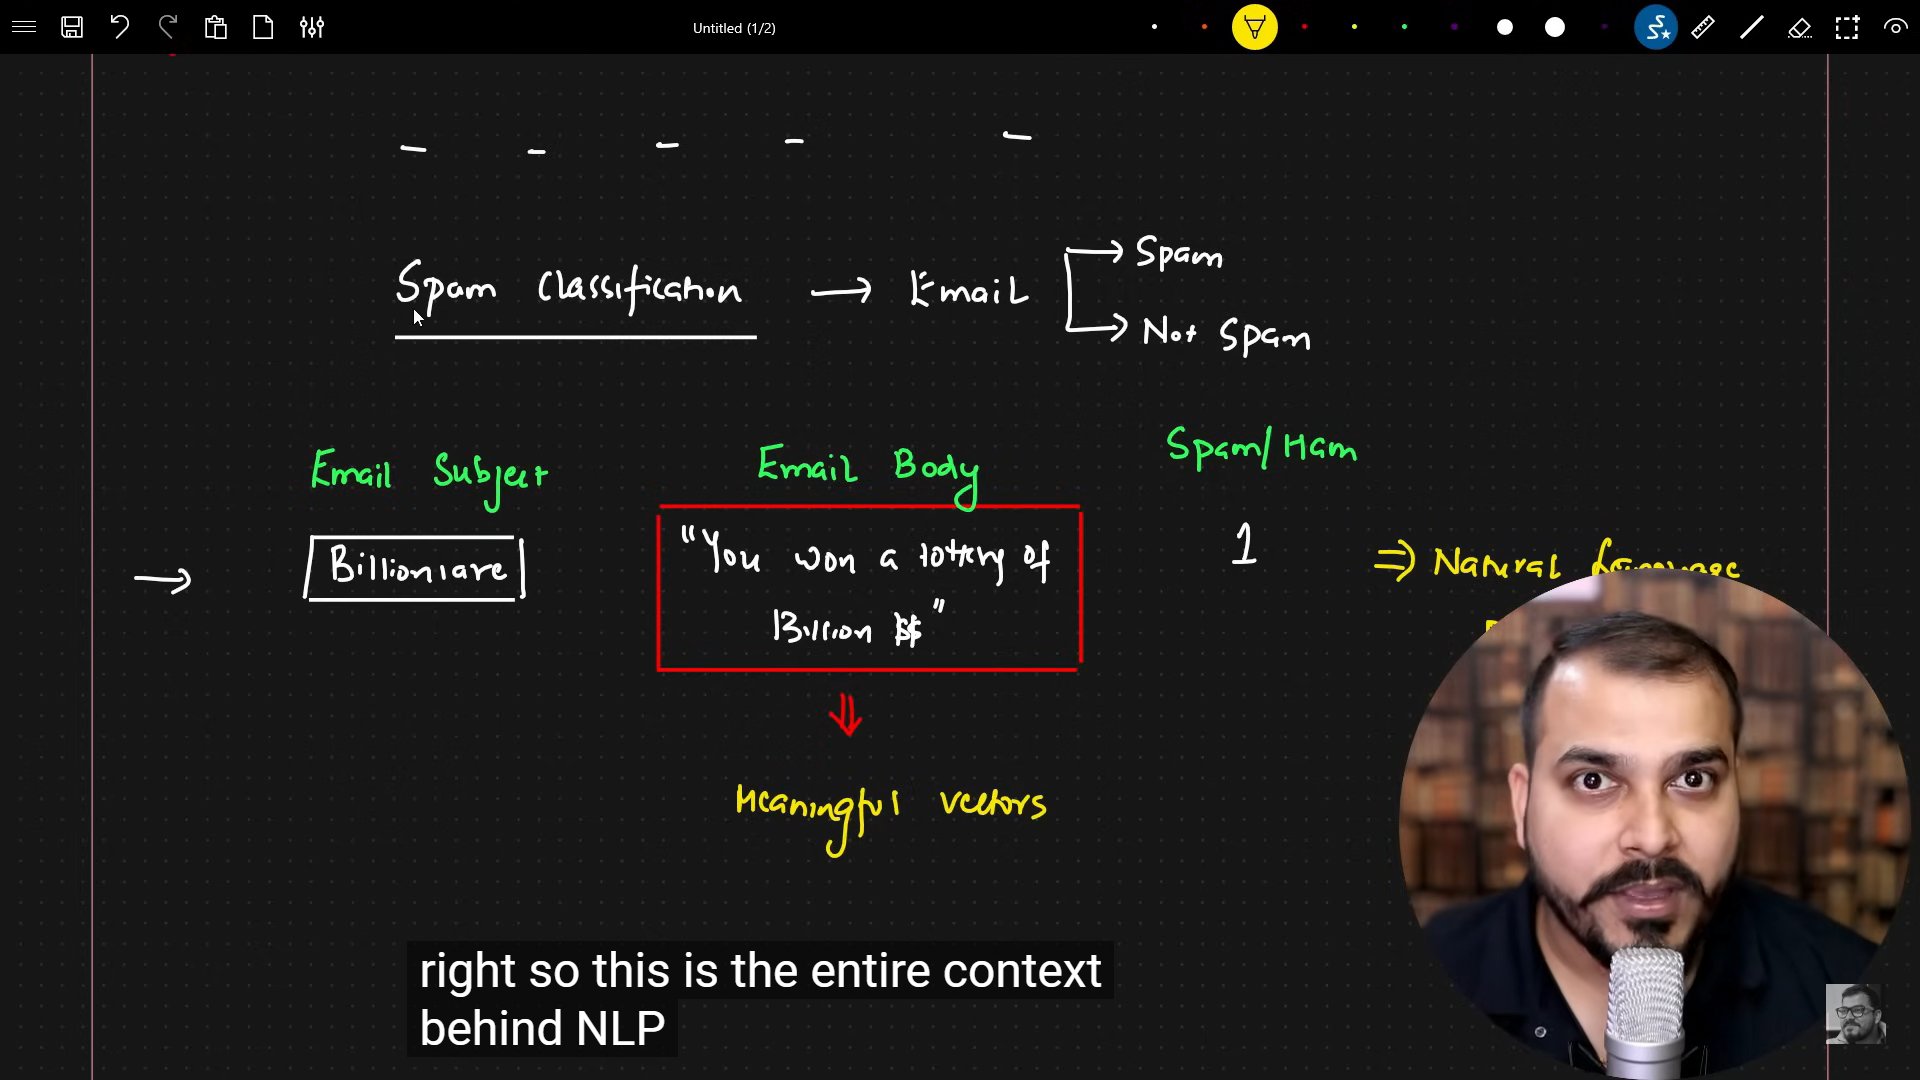 Untitled (1/2)
Spam Classification → Email
Spam
Not Spam
Email Subject
Email Body
Spam/Ham
Billioniare
"You won a lottery of
Billion $$"
1
⇒ Natural Language
Meaningful vectors
right so this is the entire context
behind NLP